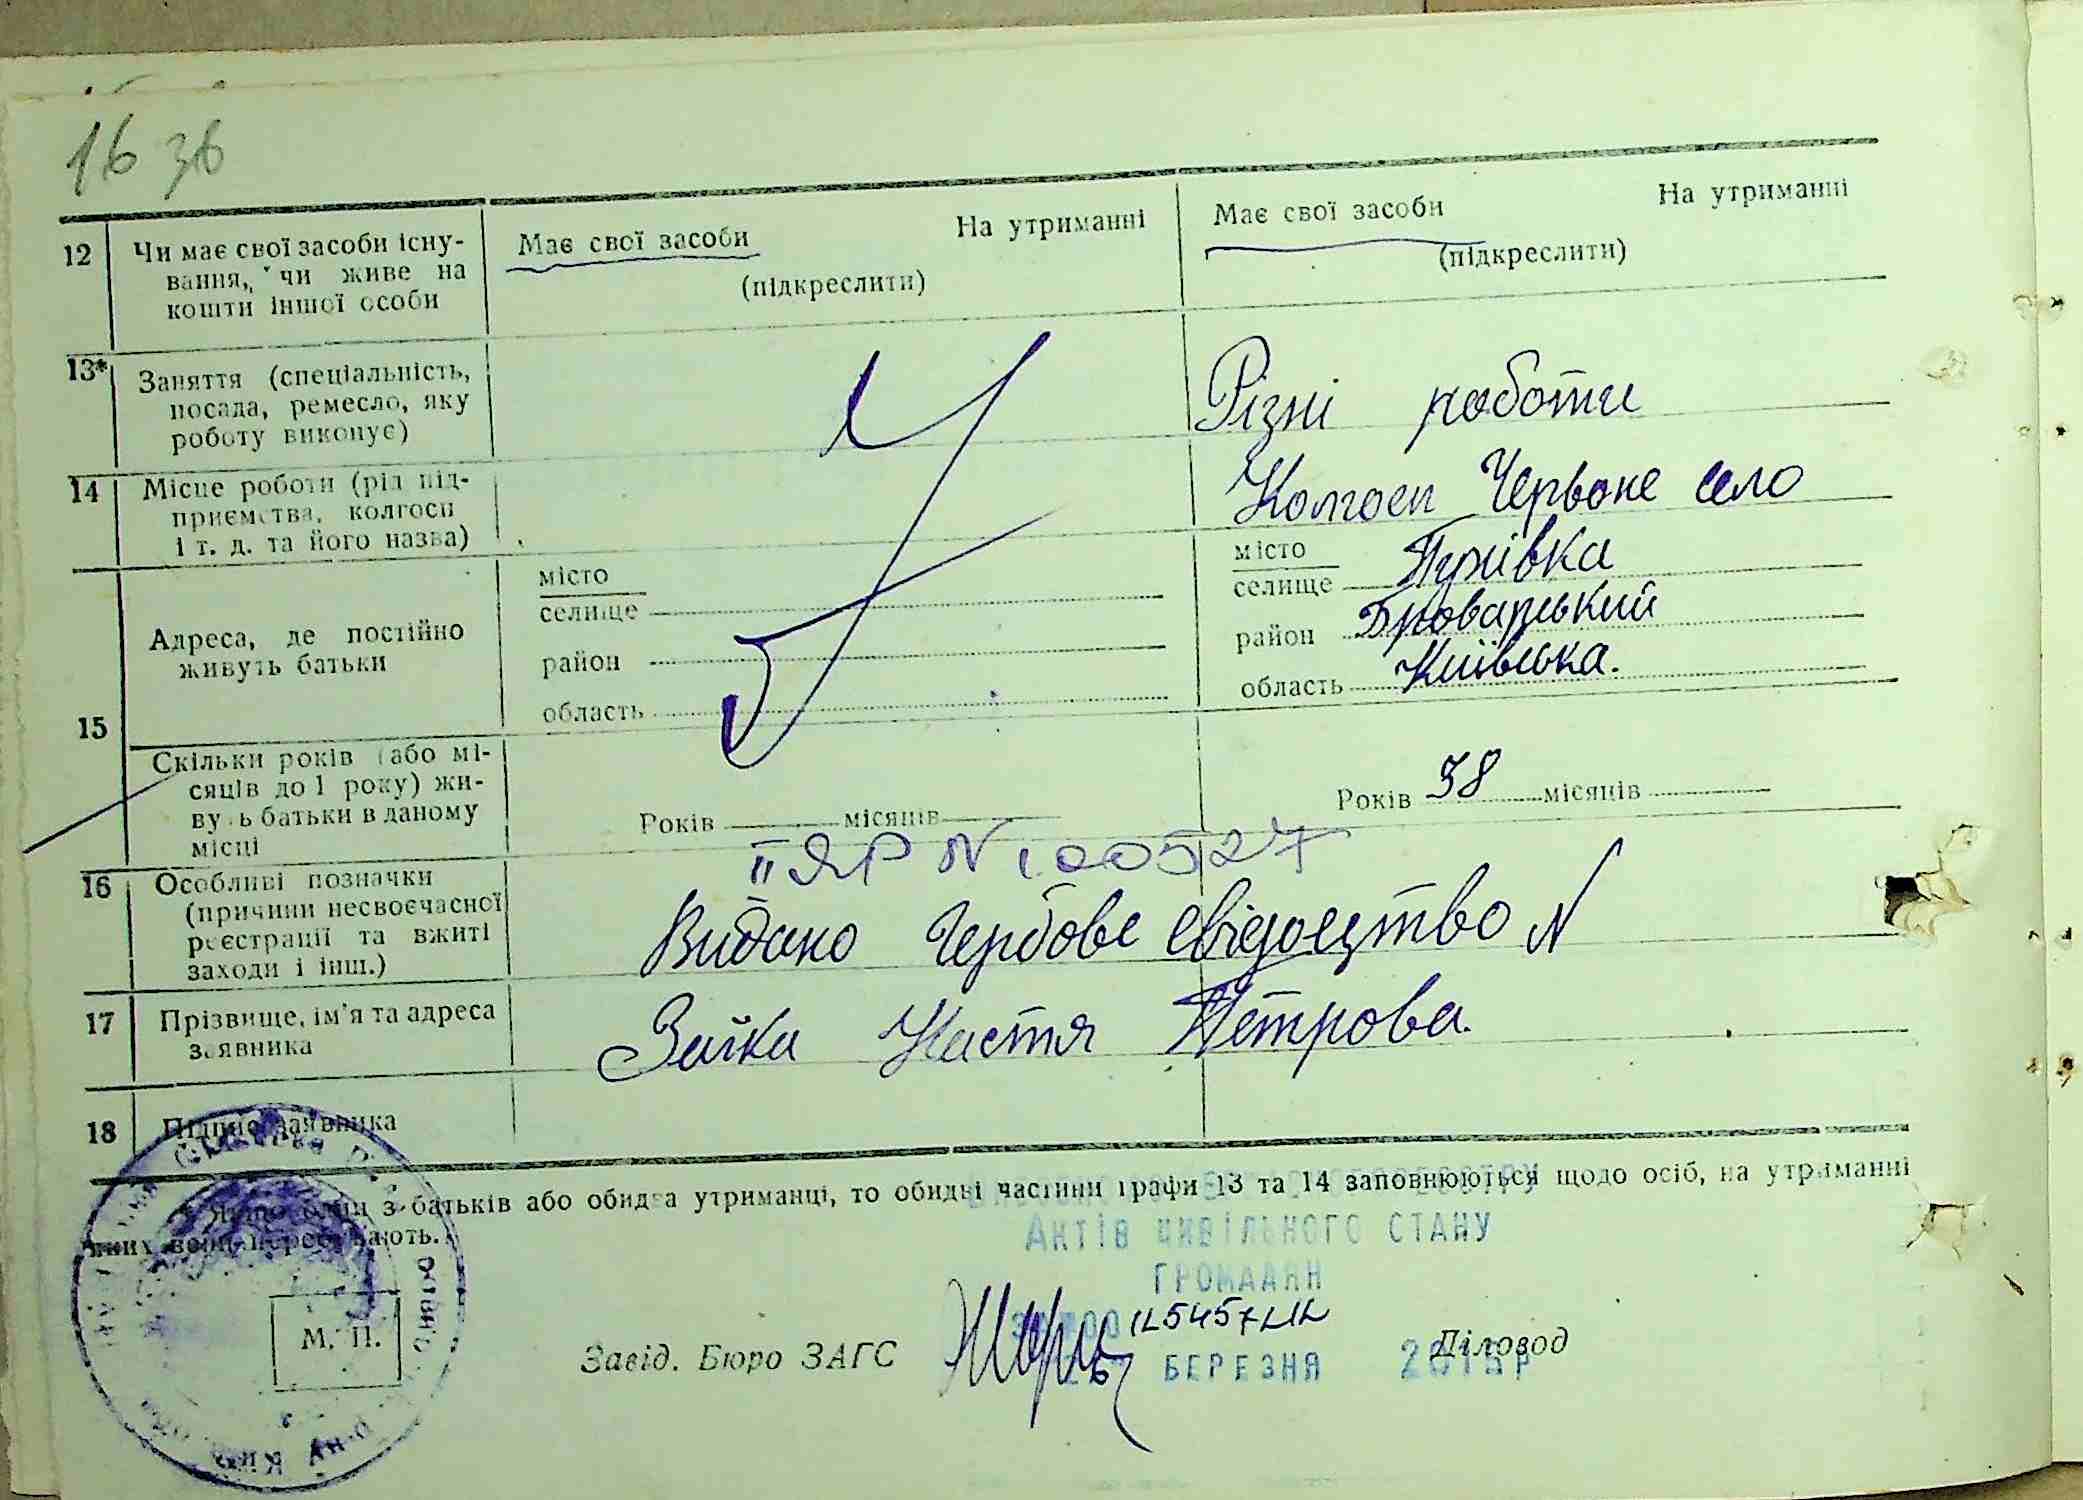 16 зв
12 Чи має свої засоби існу- Має свої засоби На утриманні Має свої засоби На утриманні
вання, чи живе на (підкреслити) (підкреслити)
кошти іншої особи
13* Заняття (спеціальність, Різні роботи
посада, ремесло, яку
роботу виконує)
14 Місце роботи (рід під- Колгосп Червоне село
приємства, колгосп
і т. д. та його назва)
15 Адреса, де постійно
живуть батьки
місто
селище
район
область
місто
селище
район Броварський
область Київська.
Скільки років (або мі- Років місяців Років 38 місяців
сяців до 1 року) жи-
вуть батьки в даному
місці
II ЯР N 100527
16 Особливі позначки Видано Гербове свідоцтво N
(причини несвоєчасної
реєстрації та вжиті
заходи і інш.)
17 Прізвище, ім'я та адреса Зайка Настя Петрова.
заявника
18 Підпис заявника
* Якщо один з батьків або обидва утриманці, то обидві частини графи 13 та 14 заповнюються щодо осіб, на утриманні
яких вони перебувають.
АКТІВ ЦИВІЛЬНОГО СТАНУ
ГРОМАДЯН
М. П. Завід. Бюро ЗАГС Діловод
БЕРЕЗНЯ 2015р